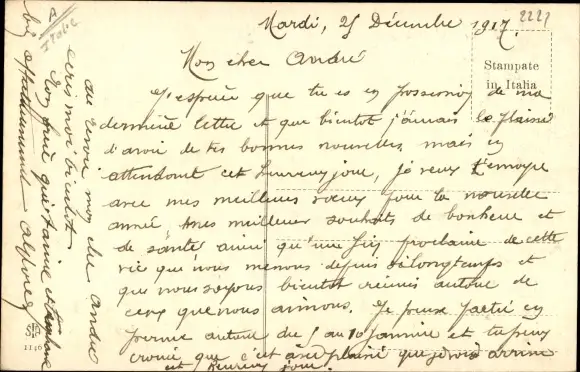 2221
Mardi, 25 Décembre 1917.
Stampate
in Italia
Mon cher André
J'espère que tu es en possession de ma
dernière lettre et que bientôt j'aurais le plaisir
d'avoir de tes bonnes nouvelles, mais en
attendant cet heureux jour, je veux t'envoyer
avec mes meilleurs vœux pour la nouvelle
année, mes meilleur souhaits de bonheur et
de santé ainsi qu'une fin prochaine de cette
vie que nous menons depuis si longtemps et
que nous soyons bientôt réunis autour de
ceux que nous aimons. Je pense partir en
perme autour du 5 au 10 janvier et tu peux
croire que c'est avec plaisir que je vois arriver
cet heureux jour.
au revoir mon cher André
écris moi bientôt
Ton frère qui t'aime et t'embrasse
bien affectueusement
1146